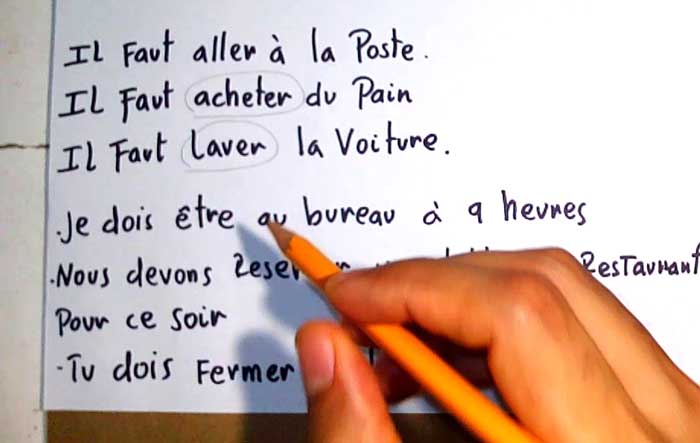 Il Faut aller à la Poste.
Il Faut acheter du Pain
Il Faut Laver la Voiture.
.Je dois être au bureau à 9 heures
.Nous devons Restaurant
Pour ce soir
-Tu dois Fermer